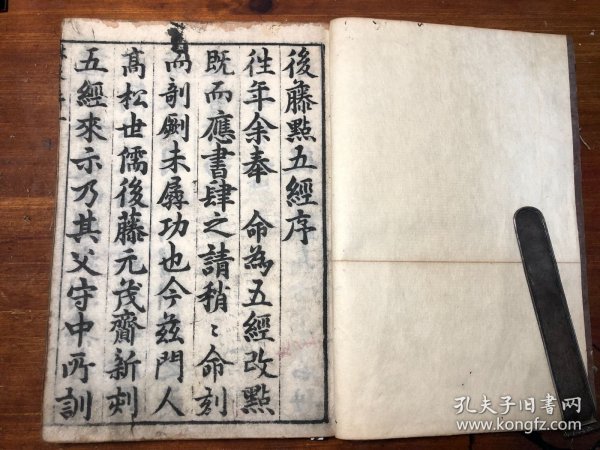 後藤點五經序
徃年余奉　命為五經改點
既而應書肆之請稍〻命刻
而剞劂未孱功也今茲門人
髙松世儒後藤元茂齎新刻
五經來示乃其父守中所訓
孔夫子旧书网
www.kongfz.com